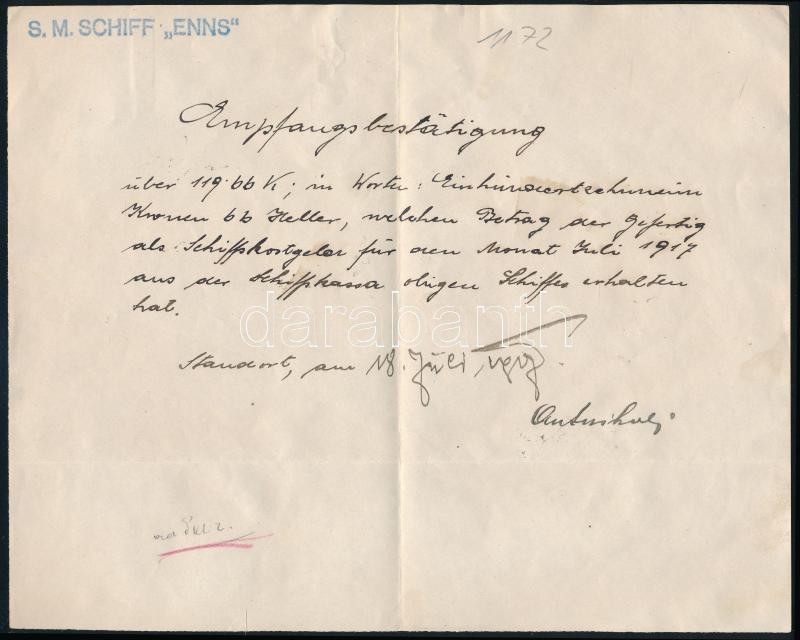 S. M. SCHIFF „ENNS“
1172
Empfangsbestätigung
über 119·66 K; in Worten: Einhundertzehnneun
Kronen 66 Heller, welchen Betrag der Gefertig
als Schiffskostgeld für den Monat Juli 1917
aus der Schiffskassa obigen Schiffes erhalten
hat.
darabanth
Standort, am 18. Juli, 1917.